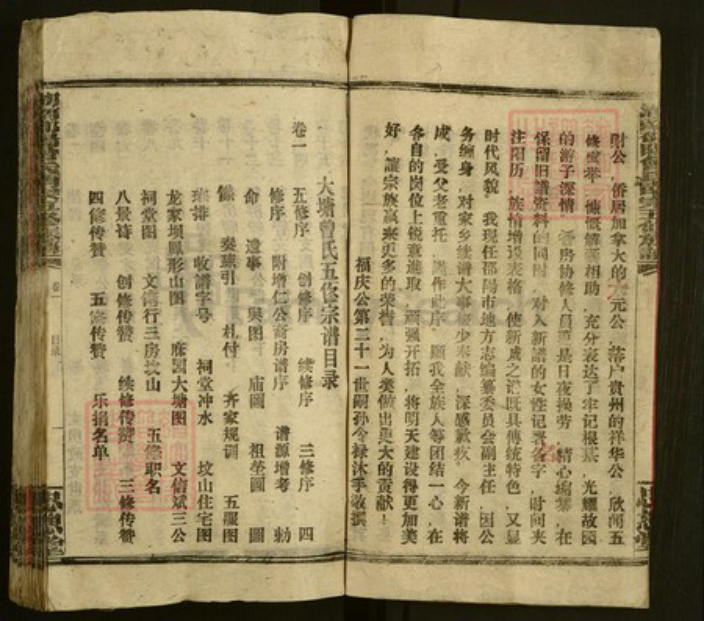 财公，侨居加拿大的元公，落户贵州的祥华公，欣闻五
修盛举，慷慨解囊相助，充分表达了牢记根基，光耀故园
的游子深情。各房协修人员更是日夜操劳，精心编纂，在
保留旧谱资料的同时，对入新谱的女性记署名字，时间夹
注阳历，族情增设表格，使新成之谱既具传统特色，又显
时代风貌。我现任邵阳市地方志编纂委员会副主任，因公
务缠身，对家乡续谱大事甚少奉献，深感歉疚。今新谱将
成，受父老重托，作此序，愿我全族人等团结一心，在
各自的岗位上锐意进取，顽强开拓，将明天建设得更加美
好，讓宗族赢来更多的荣誉，为人类做出更大的贡献！
福庆公第二十一世嗣孙令禄沐手敬撰
大塘曾氏五修宗谱目录
卷一
五修序 创修序 续修序 三修序 四
修序 附增仁公斋房谱序 谱源增考 勅
命 遗事 舆图 庙圖 祖茔圖 圖
像 奏疏引 札付 齐家规训 五服图
班排 收谱字号 祠堂冲水 坟山住宅图
龙家坝鳳形山图 庥园大塘图 文信斌三公
祠堂图 文行三房坟山 五修职名
八景诗 创修传赞 续修传赞 三修传赞
四修传赞 五修传赞 乐捐名单
卷一
目录